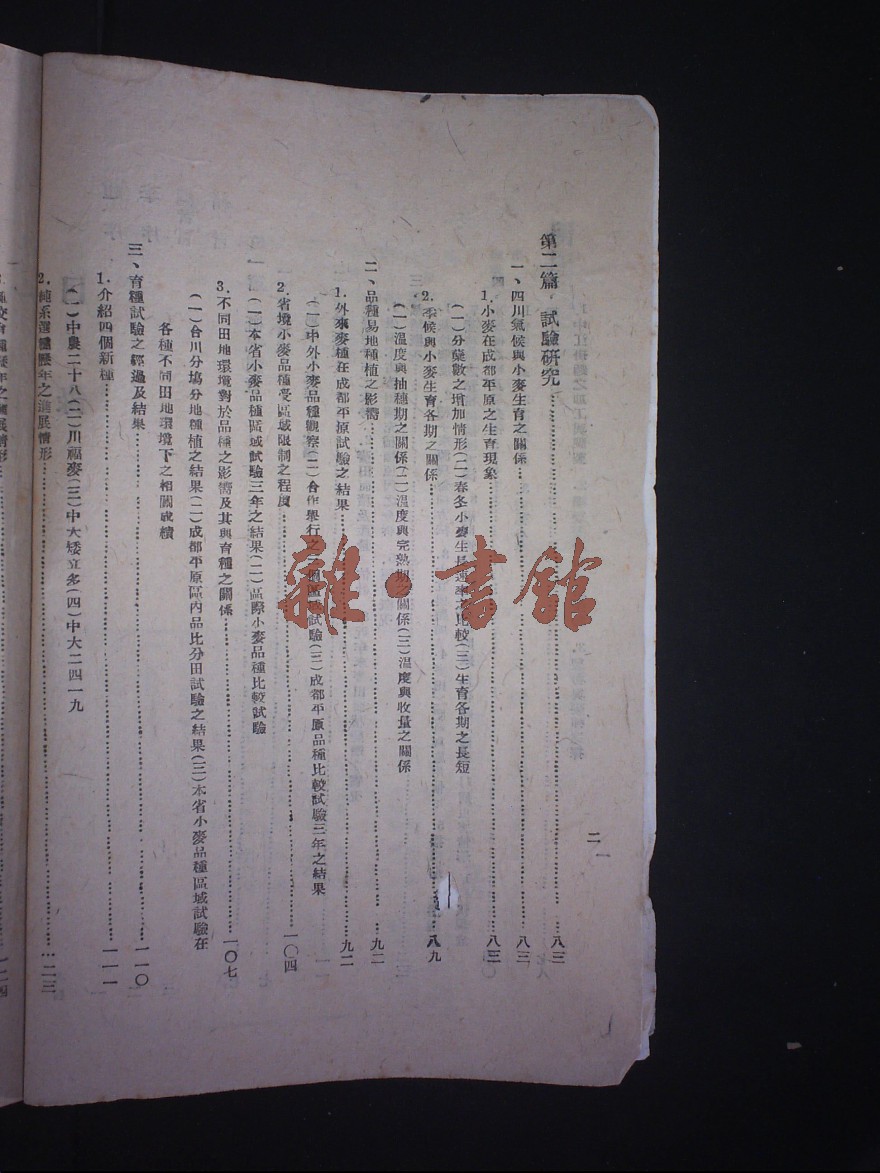 二
第二篇 試驗研究……八三
一、四川氣候與小麥生育之關係……八三
1.小麥在成都平原之生育現象……八三
(一)分蘖數之增加情形(二)春冬小麥生長速率之比較(三)生育各期之長短
2.季候與小麥生育各期之關係……八九
(一)溫度與抽穗期之關係(二)溫度與完熟期之關係(三)溫度與收量之關係
二、品種易地種植之影響……九二
1.外來麥種在成都平原試驗之結果……九二
(一)中外小麥品種觀察(二)合作舉行之 區域試驗(三)成都平原品種比較試驗三年之結果
2.省境小麥品種受區域限制之程度……一〇四
(一)本省小麥品種區域試驗三年之結果(二)區際小麥品種比較試驗
3.不同田地環境對於品種之影響及其與育種之關係……一〇七
(一)合川分場分地種植之結果(二)成都平原區內品比分田試驗之結果(三)本省小麥品種區域試驗在
各種不同田地環境下之相關成績
三、育種試驗之經過及結果……一一〇
1.介紹四個新種……一一一
(一)中農二十八(二)川福麥(三)中大矮立多(四)中大二四一九
2.純系選種歷年之進展情形……一二三
雜·書館